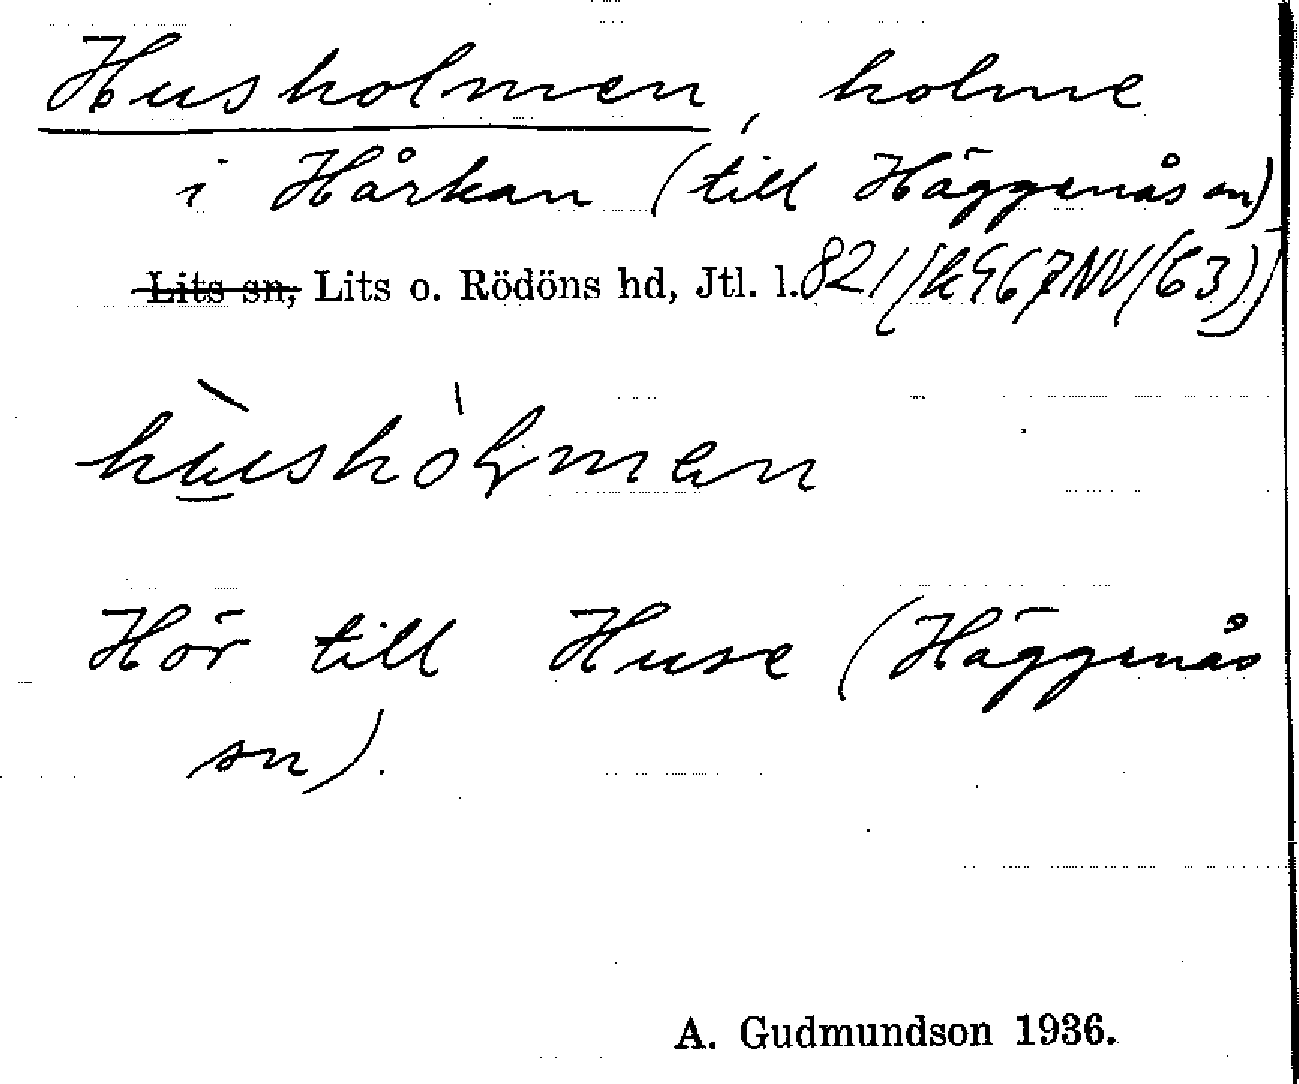 Husholmen, holme
i Hårkan (till Häggenås sn)
Lits sn, Lits o. Rödöns hd, Jtl. l.
hùshólman
Hör till Huse (Häggenås
sn).
A. Gudmundson 1936.